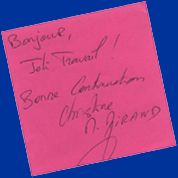 Bonjour,
Joli Travail !
Bonne Continuation,
Christine
M. GIRAND